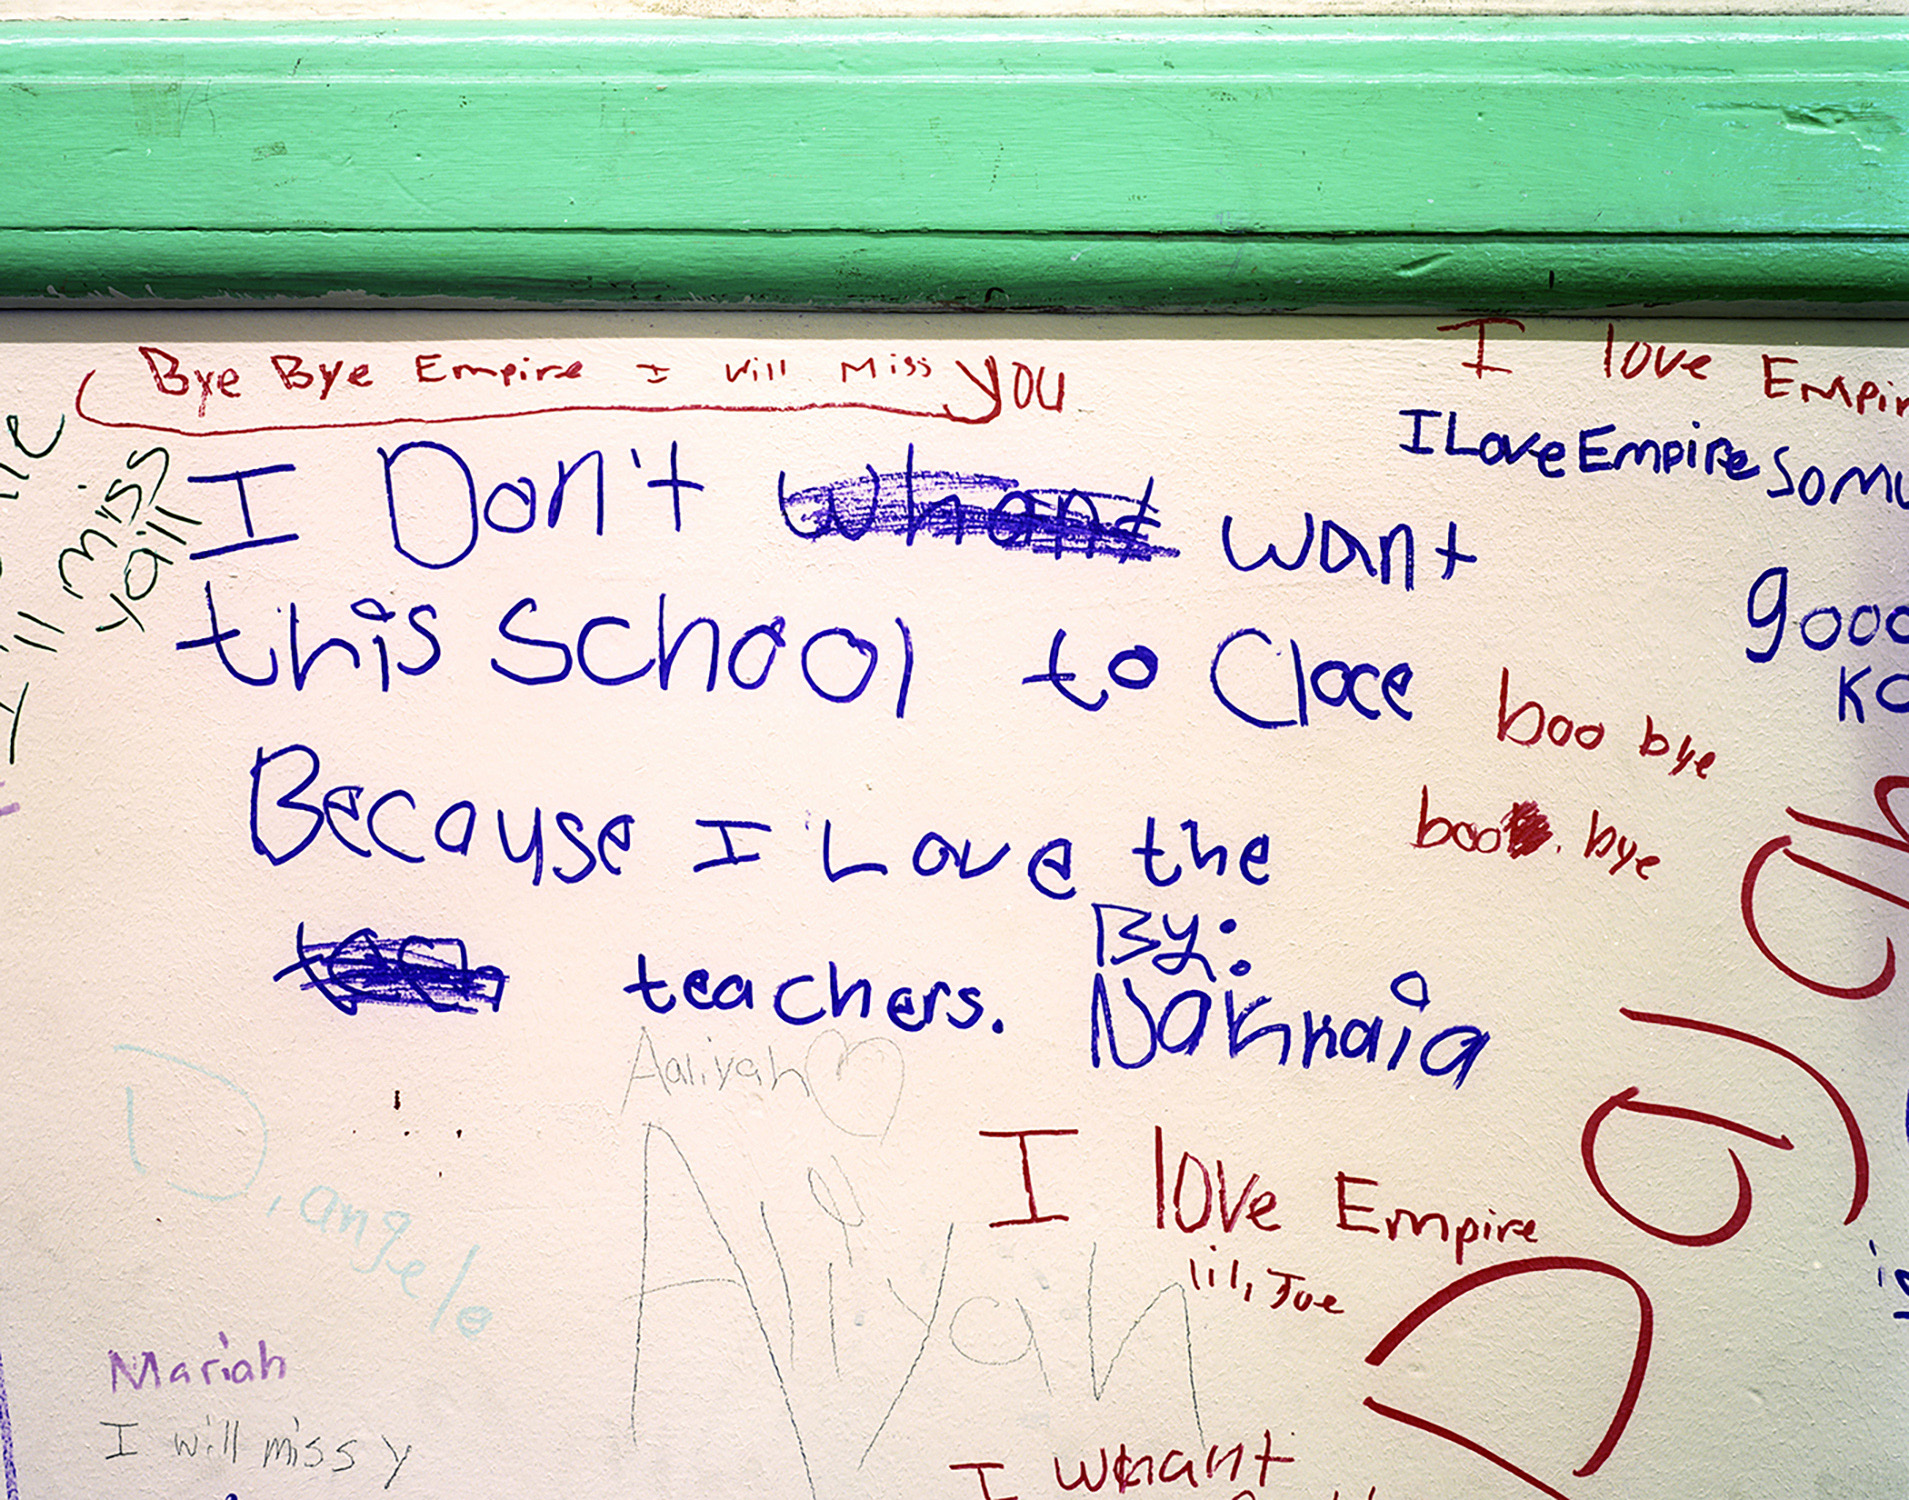 Bye Bye Empire I will Miss you
I love Empir
I Love Empire So mu
I'll miss
yall
I Don't whant want
this school to Cloce
gooo
boo bye
Because I Love the
boo bye
teachers.
By:
Nakhraia
Aaliyah
D, angelo
Aliyah
I love Empire
lil, Joe
Mariah
I will miss y
I whant